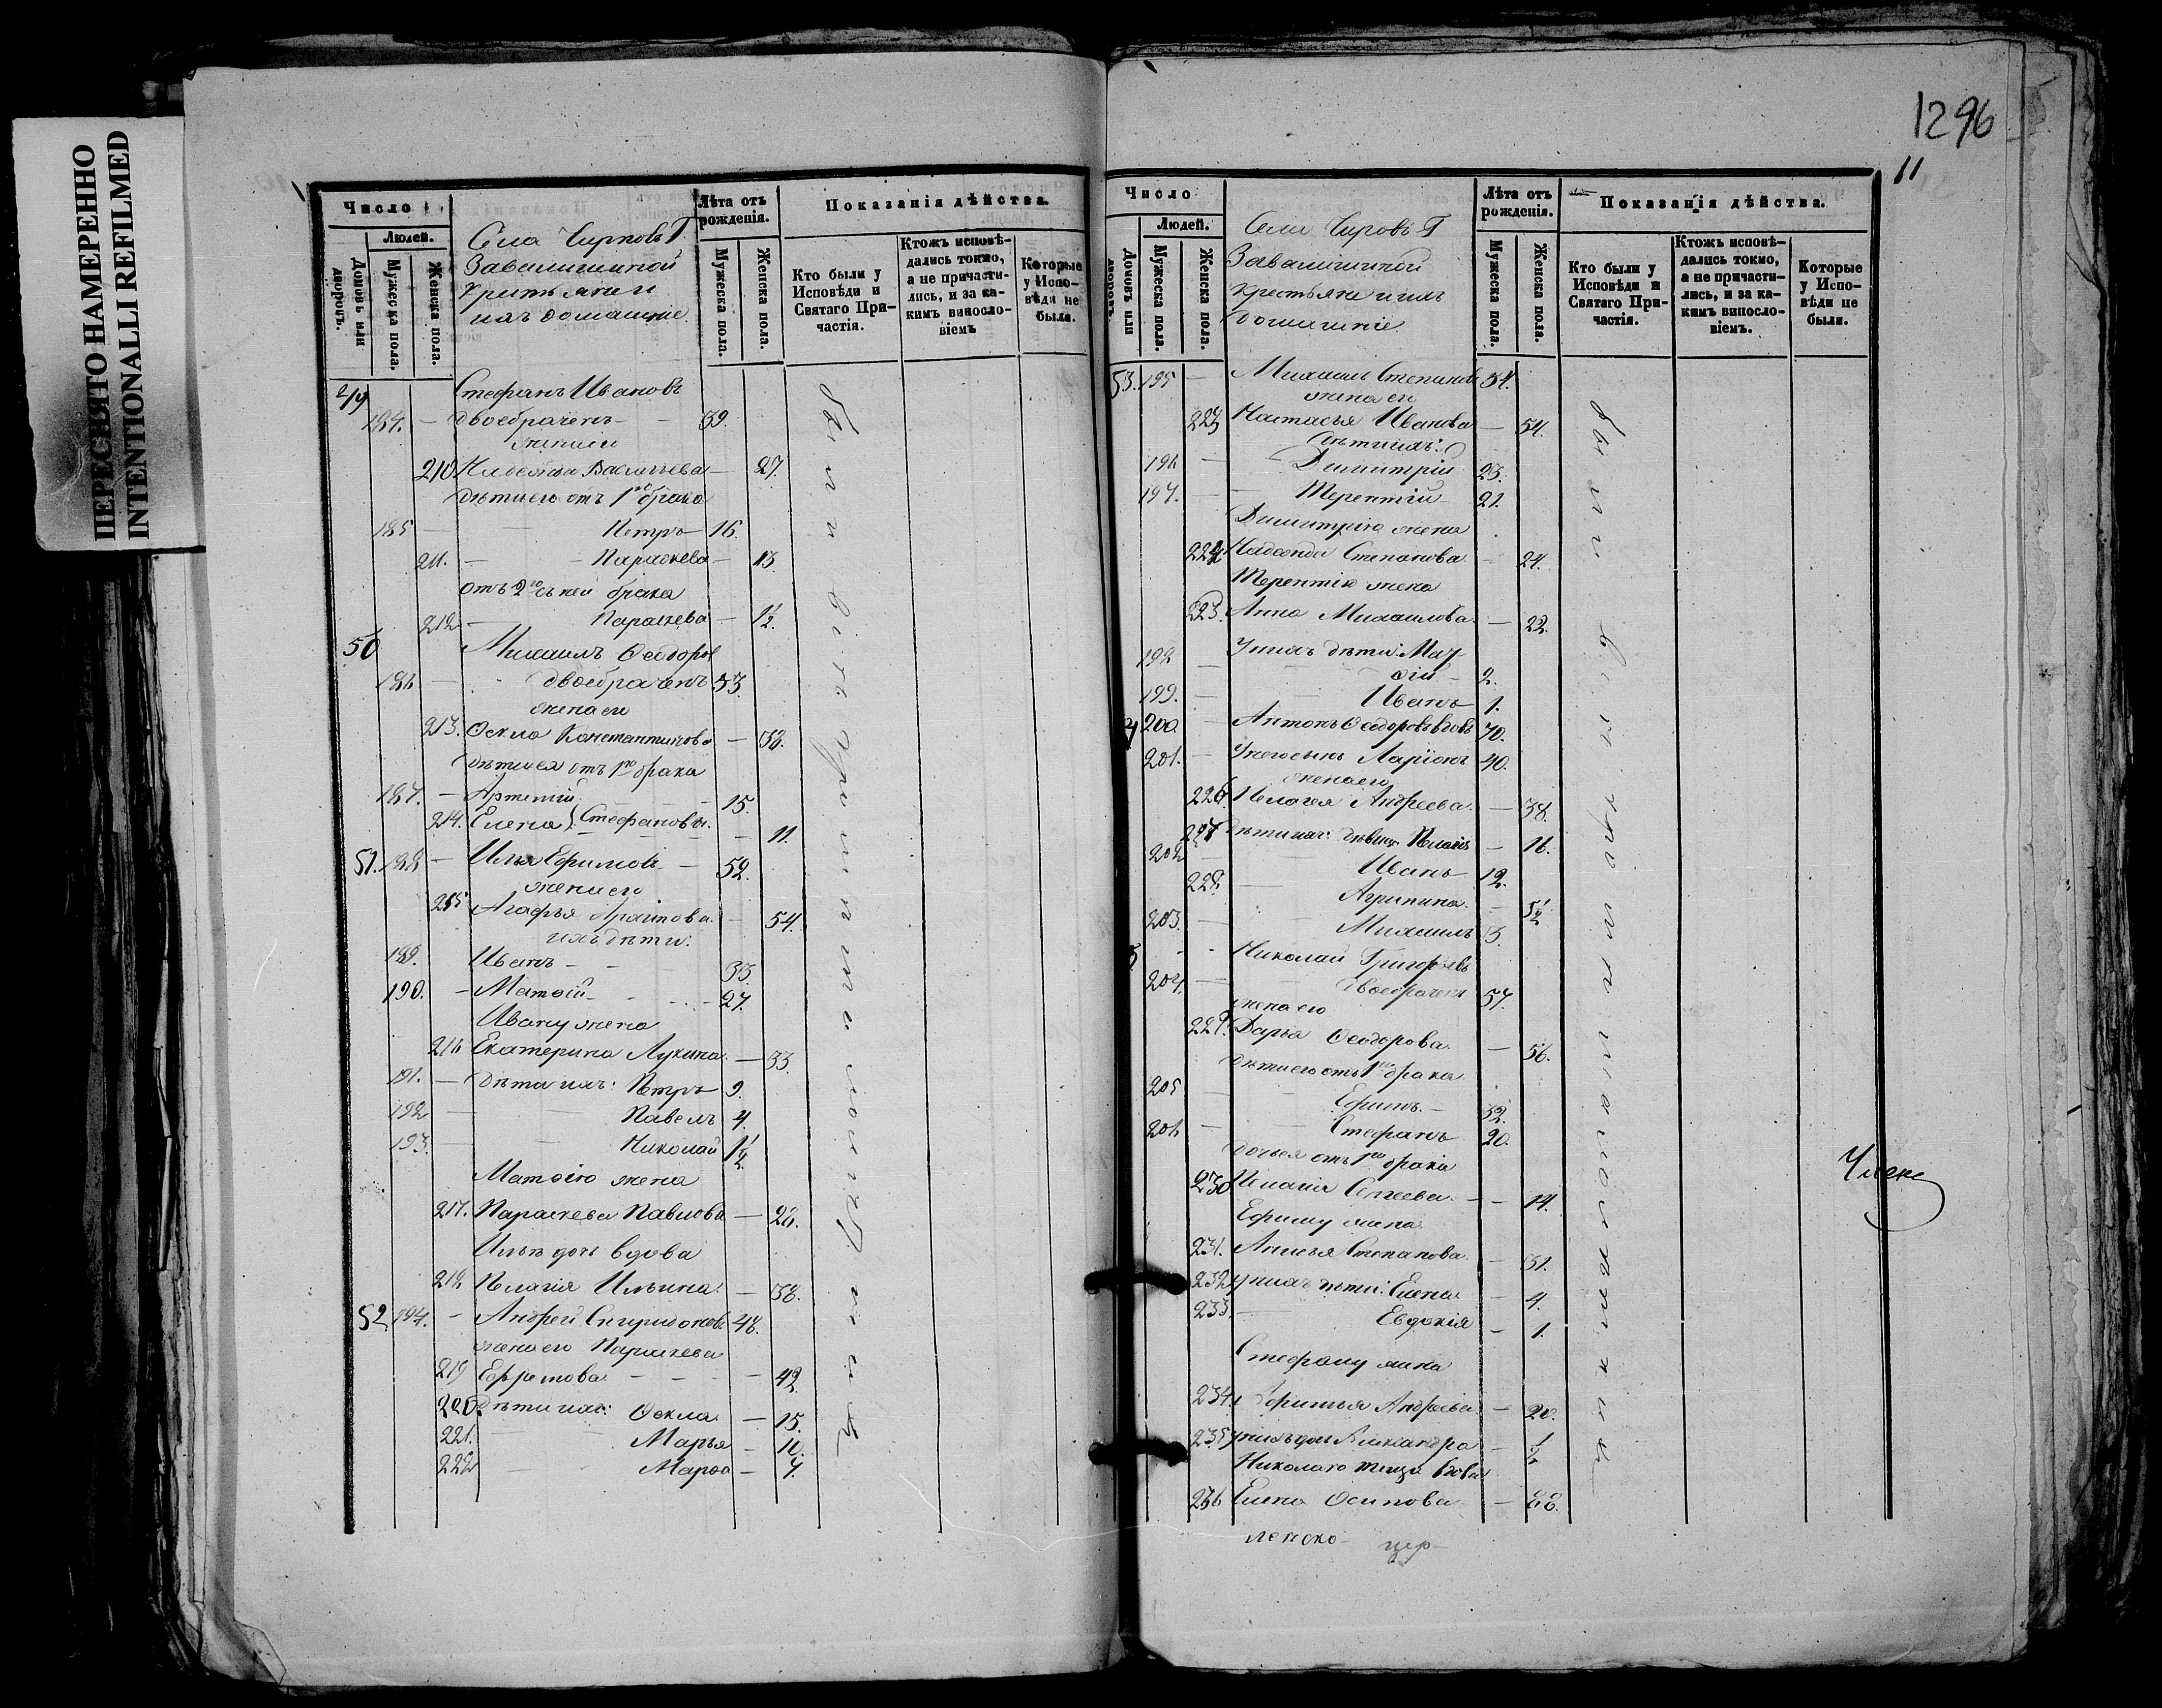 ПЕРЕСНЯТО НАМЕРЕННО
INTENTIONALLI REFILMED
1296
11
Число
Людей.
Домовъ или дворовъ.
Мужеска пола.
Женска пола.
Лѣта отъ рожденія.
Мужеска пола.
Женска пола.
Показанія дѣйства.
Кто были у Исповѣди и Святаго Причастія.
Ктожъ исповѣдались токмо, а не причастились, и за какимъ винословіемъ
Которые у Исповѣди не были.
Села Г.
Завалишиной
крестьяне и
ихъ домашніе.
49 Стефанъ Ивановъ
184. – двоебраченъ – 39.
жена его
210 Васильева – 27.
дѣти его отъ 1го брака
185 – Петръ – 16.
211. – Параскева – 13.
отъ 2го съ ней брака
212 – Параскева – 1½.
50 Михаилъ Ѳеодоров
186 – двоебраченъ 53.
жена его
213. Ѳекла Константинова – 38.
дѣти ея отъ 1го брака
187. – Артемій 15.
214. Елена } Стефановы. – 11.
51. 188 – Илья Ефимовъ – 52.
жена его
215 Агафья – 54.
ихъ дѣти:
189. Иванъ – – 33.
190. – Матѳій – 27.
Ивану жена
216 Екатерина Лукина – 33.
191. – дѣти ихъ: Петръ 9.
192 – Павелъ 4.
193. – Николай 1½.
Матѳію жена
217. Параскева Павлова – 26.
Ильи дочь вдова
218 Пелагія Ильина – 38.
52. 194. – Андрей Спиридоновъ 48.
жена его Параскева
219 Ефремова – – – 42.
220. Дѣти ихъ: Ѳекла – 15.
221. Марья – 10.
222 – Марѳа – 7.
Были въ исповѣди
Число
Людей.
Домовъ или дворовъ.
Мужеска пола.
Женска пола.
Лѣта отъ рожденія.
Мужеска пола.
Женска пола.
Показанія дѣйства.
Кто были у Исповѣди и Святаго Причастія.
Ктожъ исповѣдались токмо, а не причастились, и за какимъ винословіемъ.
Которые у Исповѣди не были.
Села Г
Завалишиной
крестьяне и ихъ
домашніе.
53. 195 – Михаилъ Степановъ 54.
жена его
223 Настасья Иванова – 54.
дѣти ихъ:
196 – Димитрій 23.
197. – Терентій 21.
Димитрію жена
224 Надежда Степанова – 24.
Терентію жена
225. Анна Михаилова – 22.
198 У нихъ дѣти: Мат
ѳій – 2.
199. – Иванъ 1.
200 – Антонъ Ѳеодоровъ вдовъ 70.
201. – У него сынъ Ларіонъ 40.
жена его
226 Пелагея Андреева – 38.
227 дѣти ихъ: – 16.
202 – Иванъ 12.
228. – Агрипина – 5½
203. – Михаилъ 3.
Николай Григорьевъ
204. – двоебраченъ 57.
жена его
229. Дарья Ѳеодорова – 56.
дѣти его отъ 1го брака
205 Ефимъ – 32.
206 – Стефанъ 20.
дочь ея отъ 1го брака
230 Пелагія Сергеева – 14.
Ефиму жена
231. Анисья Степанова – 31.
232 у нихъ дѣти: Елена – 4.
233. – Евдокія – 1.
Стефану жена
234. Андреева – 20.
235 у нихъ дочь Александра – ½
Николаю теща вдова
236 Елена Осипова –
Члене
ленско – цер